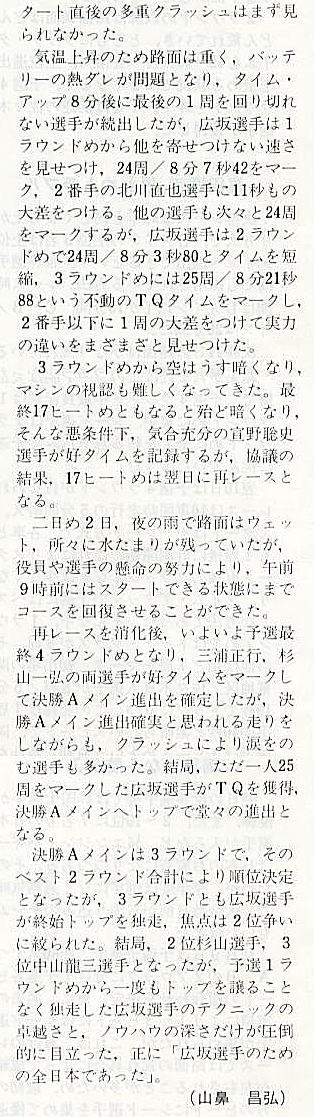 タート直後の多重クラッシュはまず見
られなかった。
　気温上昇のため路面は重く，バッテ
リーの熱ダレが問題となり，タイム・
アップ8分後に最後の1周を回り切れ
ない選手が続出したが，広坂選手は1
ラウンドめから他を寄せつけない速さ
を見せつけ，24周／8分7秒42をマー
ク，2番手の北川直也選手に11秒もの
大差をつける。他の選手も次々と24周
をマークするが，広坂選手は2ラウン
ドめで24周／8分3秒80とタイムを短
縮，3ラウンドめには25周／8分21秒
88という不動のTQタイムをマークし，
2番手以下に1周の大差をつけて実力
の違いをまざまざと見せつけた。
　3ラウンドめから空はうす暗くなり，
マシンの視認も難しくなってきた。最
終17ヒートめともなると殆ど暗くなり，
そんな悪条件下，気合充分の宣野聡史
選手が好タイムを記録するが，協議の
結果，17ヒートめは翌日に再レースと
なる。
　二日め2日，夜の雨で路面はウェッ
ト，所々に水たまりが残っていたが，
役員や選手の懸命の努力により，午前
9時前にはスタートできる状態にまで
コースを回復させることができた。
　再レースを消化後，いよいよ予選最
終4ラウンドめとなり，三浦正行，杉
山一弘の両選手が好タイムをマークし
て決勝Aメイン進出を確定したが，決
勝Aメイン進出確実と思われる走りを
しながらも，クラッシュにより涙をの
む選手も多かった。結局，ただ一人25
周をマークした広坂選手がTQを獲得，
決勝Aメインへトップで堂々の進出と
なる。
　決勝Aメインは3ラウンドで，その
ベスト2ラウンド合計により順位決定
となったが，3ラウンドとも広坂選手
が終始トップを独走，焦点は2位争い
に絞られた。結局，2位杉山選手，3
位中山龍三選手となったが，予選1ラ
ウンドめから一度もトップを譲ること
なく独走した広坂選手のテクニックの
卓越さと，ノウハウの深さだけが圧倒
的に目立った，正に「広坂選手のため
の全日本であった」。
（山鼻　昌弘）